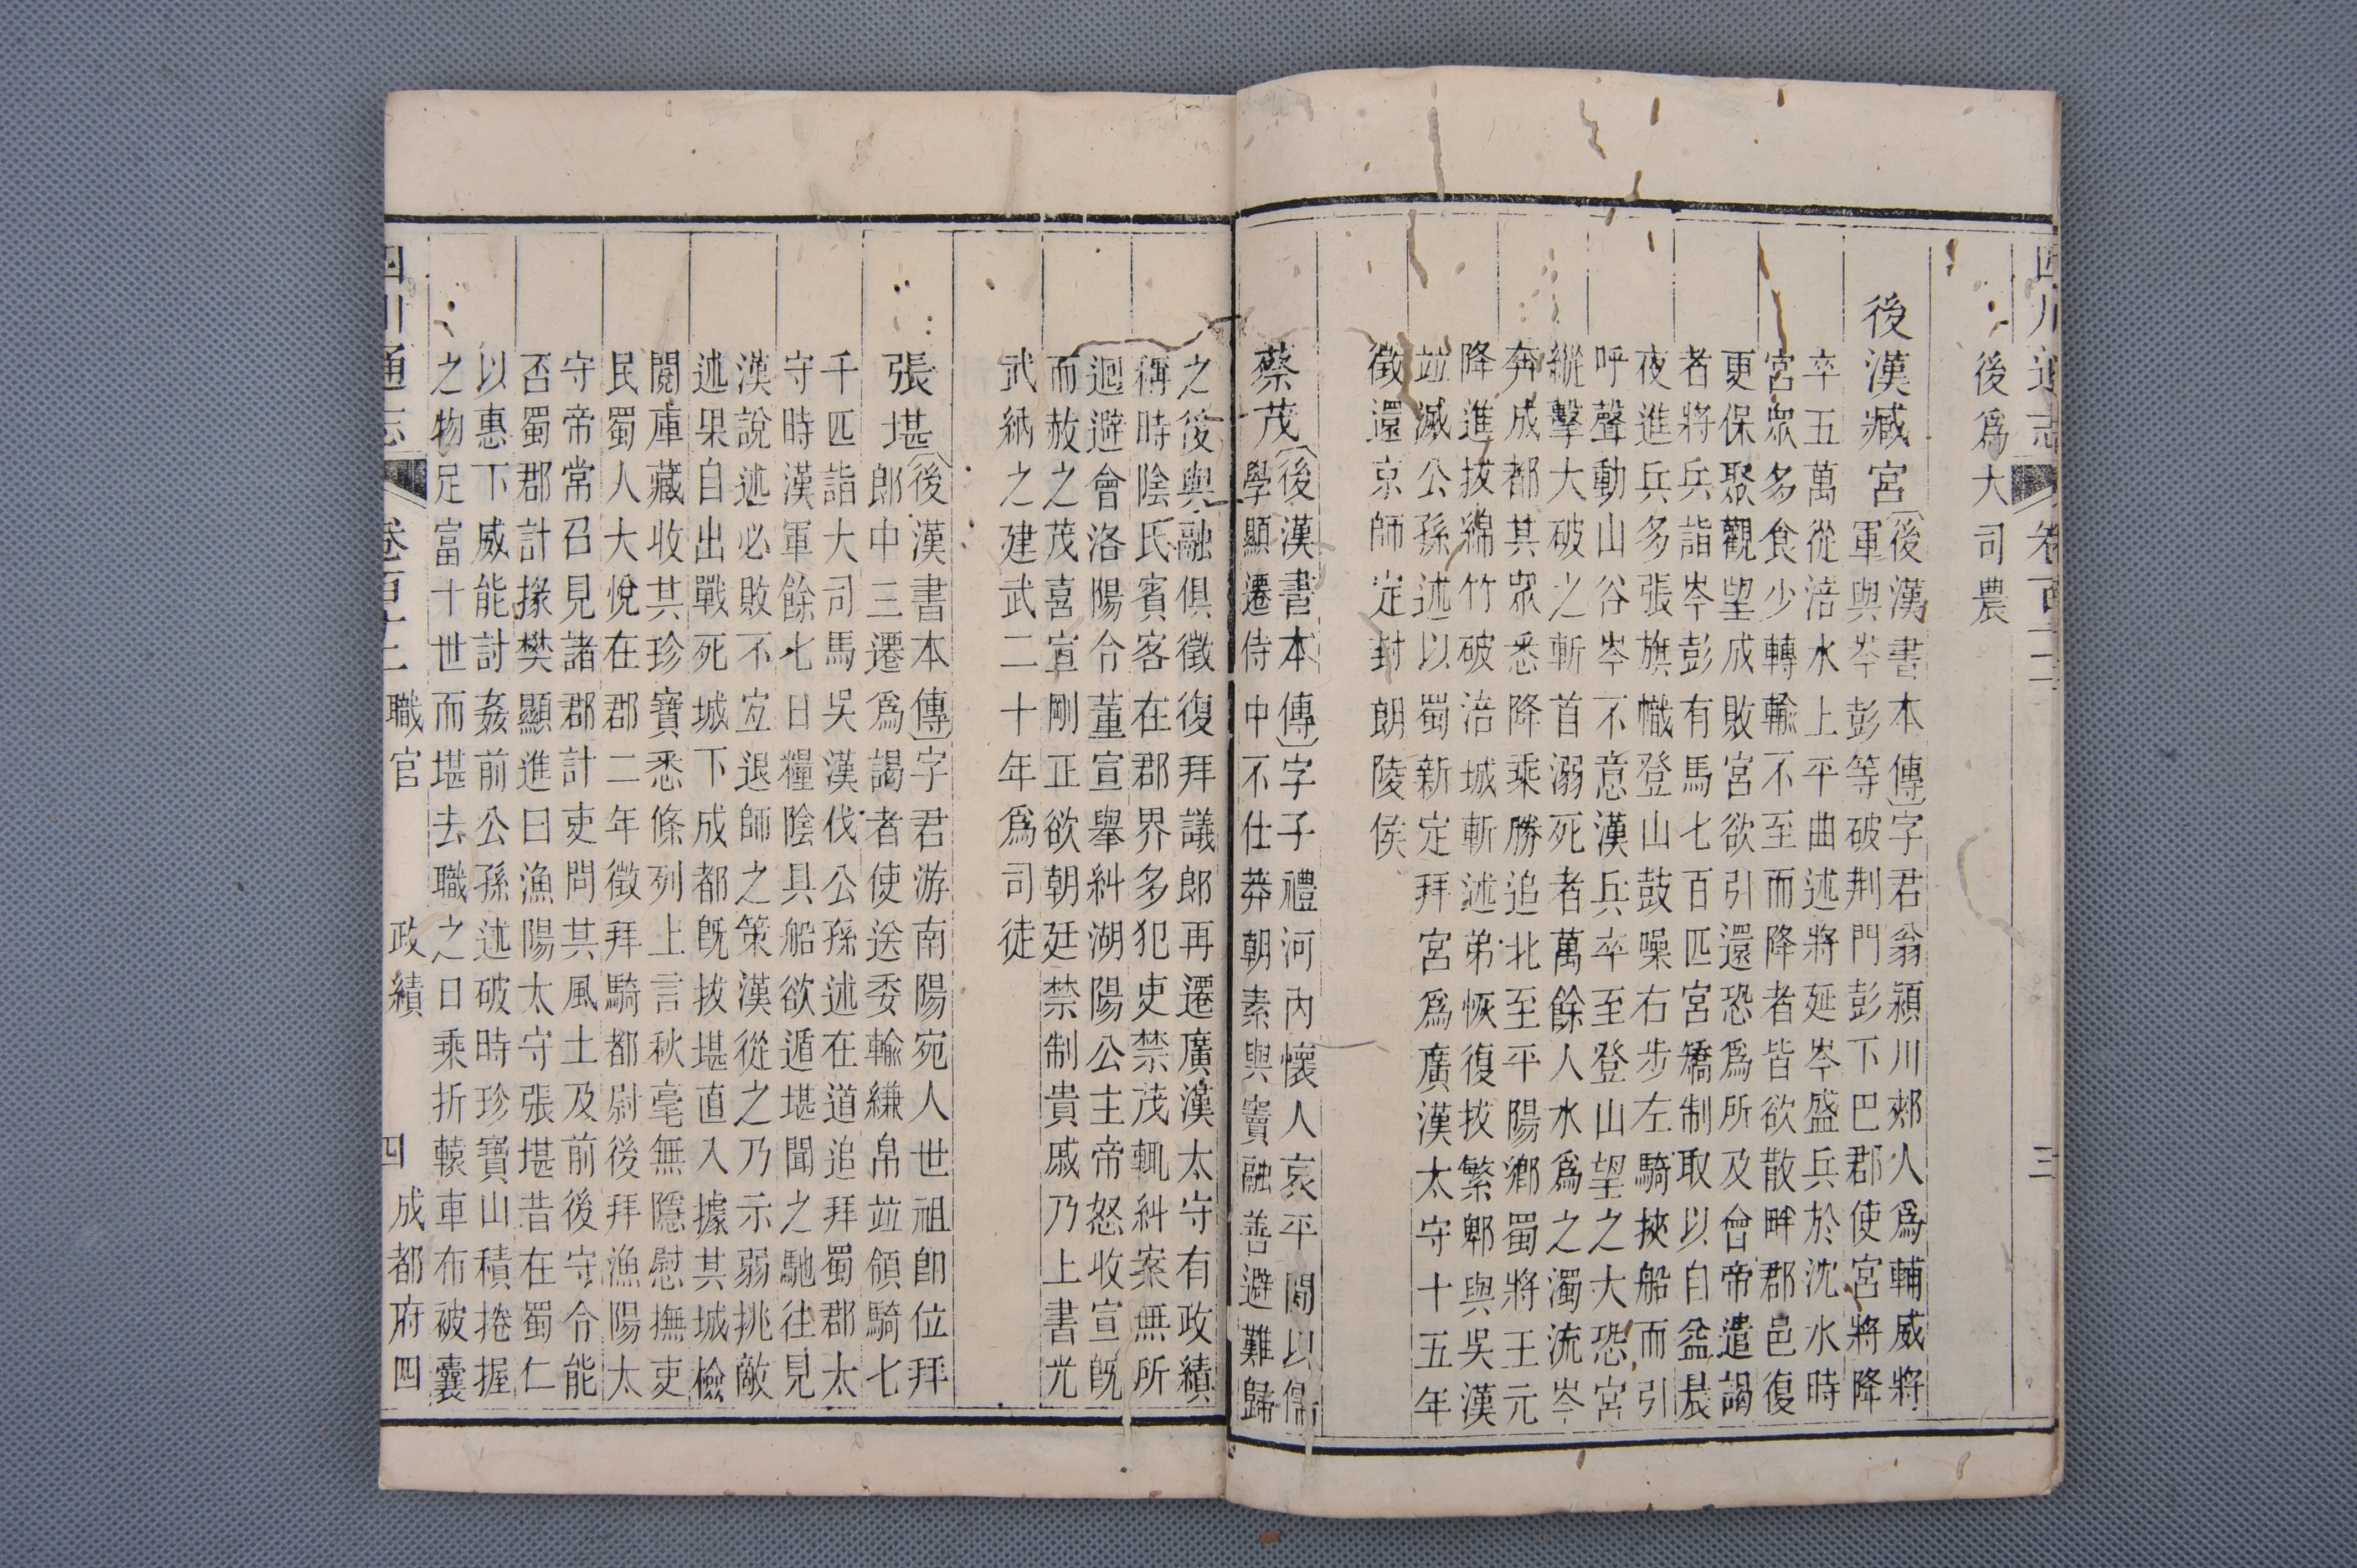 四川通志 卷百十二 三
後爲大司農
後漢臧宮
〔後漢書本傳〕字君翁潁川郟人爲輔威將
軍與岑彭等破荆門彭下巴郡使宮將降
卒五萬從涪水上平曲述將延岑盛兵於沈水時
宮眾多食少轉輸不至而降者皆欲散畔郡邑復
更保聚觀望成敗宮欲引還恐爲所及會帝遣謁
者將兵詣岑彭有馬七百匹宮矯制取以自益晨
夜進兵多張旗幟登山鼓噪右步左騎挾船而引
呼聲動山谷岑不意漢兵卒至登山望之大恐宮
縱擊大破之斬首溺死者萬餘人水爲之濁流岑
奔成都其眾悉降乘勝追北至平陽鄉蜀將王元
降進拔綿竹破涪城斬述弟恢復拔繁郫與吳漢
竝滅公孫述以蜀新定拜宮爲廣漢太守十五年
徵還京師定封朗陵侯
蔡茂
〔後漢書本傳〕字子禮河內懷人哀平間以儒
學顯遷侍中不仕莽朝素與竇融善避難歸
之後與融俱徵復拜議郎再遷廣漢太守有政績
稱時陰氏賓客在郡界多犯吏禁茂輒糾案無所
迴避會洛陽令董宣舉糾湖陽公主帝怒收宣旣
而赦之茂喜宣剛正欲朝廷禁制貴戚乃上書光
武納之建武二十年爲司徒
張堪
〔後漢書本傳〕字君游南陽宛人世祖卽位拜
郎中三遷爲謁者使送委輸縑帛竝領騎七
千匹詣大司馬吳漢伐公孫述在道追拜蜀郡太
守時漢軍餘七日糧陰具船欲遁堪聞之馳往見
漢說述必敗不宜退師之策漢從之乃示弱挑敵
述果自出戰死城下成都旣拔堪直入據其城檢
閱庫藏收其珍寶悉條列上言秋毫無隱慰撫吏
民蜀人大悅在郡二年徵拜騎都尉後拜漁陽太
守帝常召見諸郡計吏問其風土及前後守令能
否蜀郡計掾樊顯進曰漁陽太守張堪昔在蜀仁
以惠下威能討姦前公孫述破時珍寶山積捲握
之物足富十世而堪去職之日乘折轅車布被囊
四川通志 卷百十二 職官 政績 四 成都府四